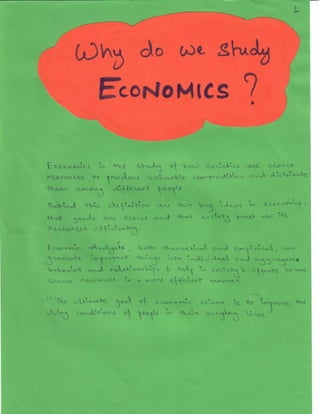 1
Why do we study
ECONOMICS ?
Economics is the study of how societies use scarce
resources to produce valuable commodities and distribute
them among different people.
Behind this definition are two key ideas in economics:
that goods are scarce and that society must use its
resources efficiently.
Economic Analysis, both theoretical and empirical, can
generate important things into individual and aggregate
behavior and relationships & help in society's efforts to use
scarce resources in a more efficient manner.
"The ultimate goal of economic science is to improve the
living conditions of people in their everyday lives"